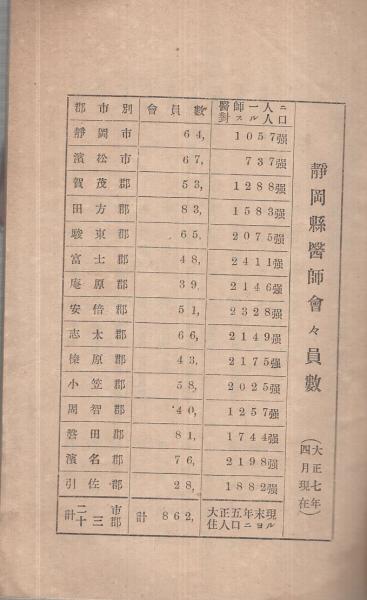 靜岡縣醫師會々員數
（大正七年四月現在）
郡市別 會員數 醫師一人ニ對スル人口
靜岡市 64, 1057強
濱松市 67, 737強
賀茂郡 53, 1288強
田方郡 83, 1583強
駿東郡 65, 2075強
富士郡 48, 2411強
庵原郡 39, 2146強
安倍郡 51, 2328強
志太郡 66, 2149強
榛原郡 43, 2175強
小笠郡 58, 2025強
周智郡 40, 1257強
磐田郡 81, 1744強
濱名郡 76, 2198強
引佐郡 28, 1882強
計二市十三郡 計 862, 大正五年末現住人口ニヨル